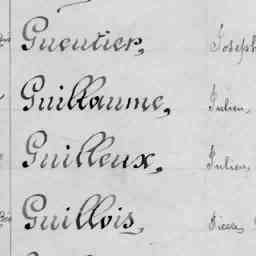 Gueutier, Joseph
Guillaume, Julien,
Guilleux, Julien,
Guillois, Pierre,